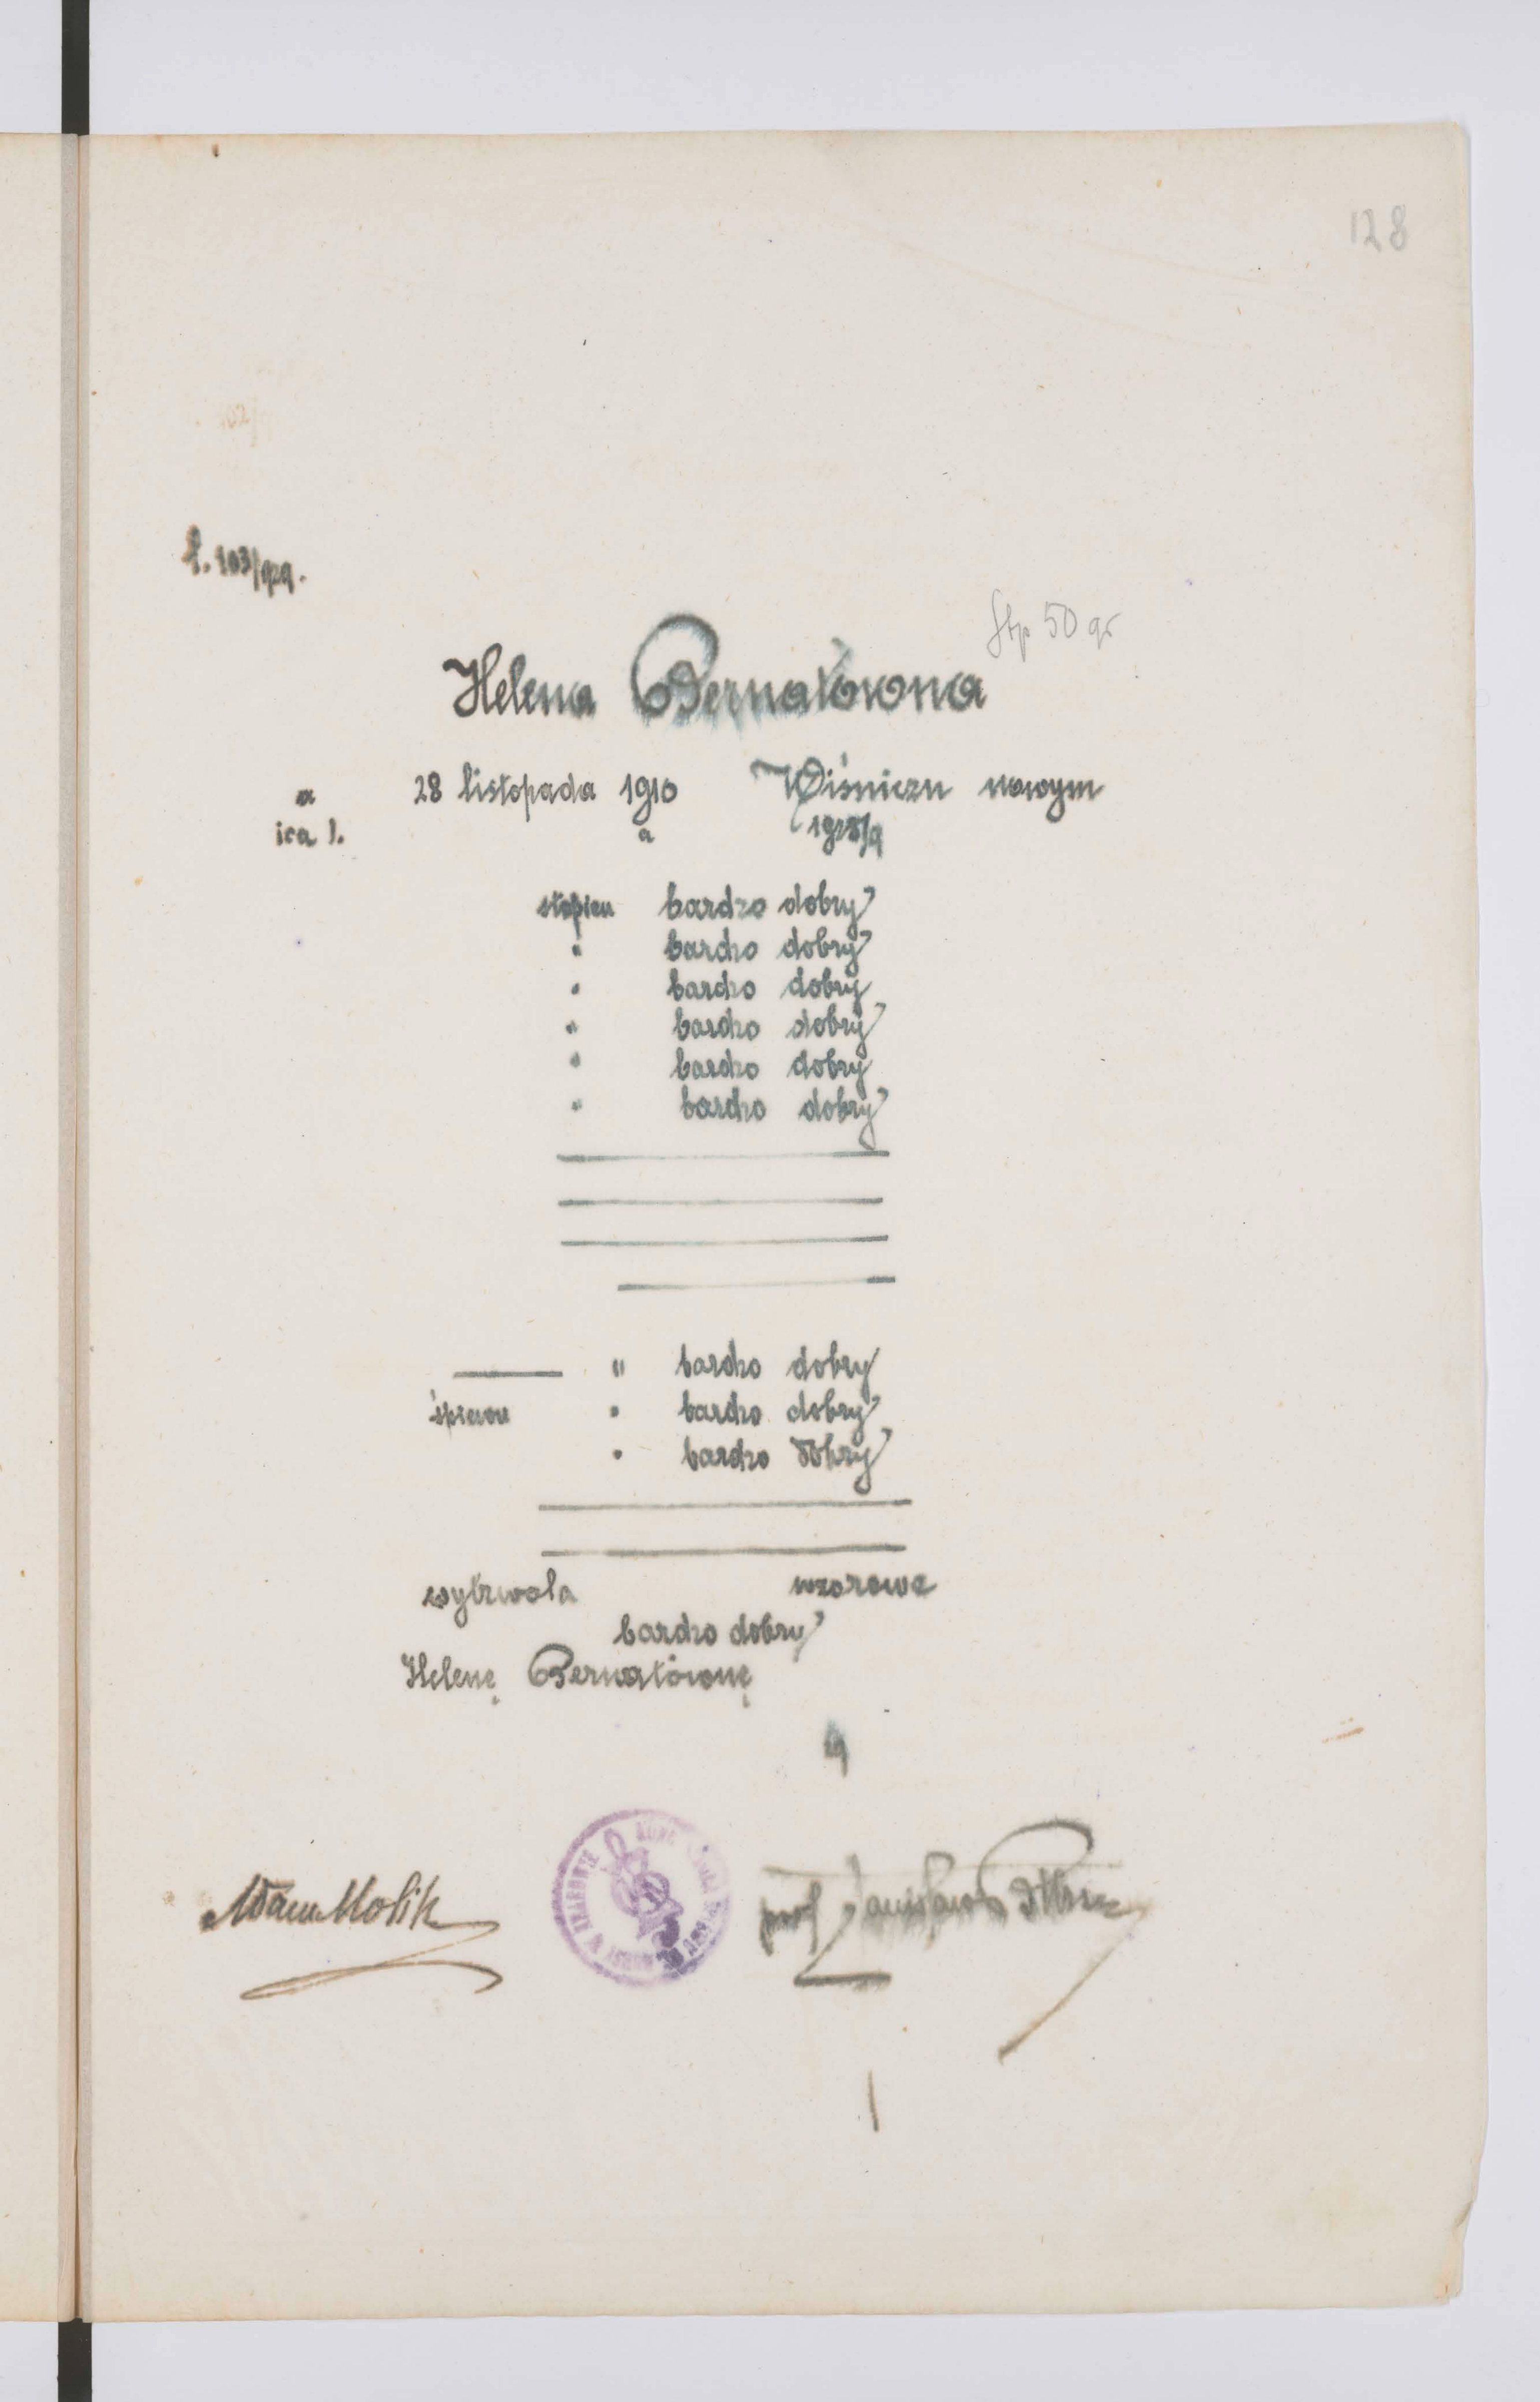 128
l. 103/929.
Stp 50 gr
Helena Bernatówna
a 28 listopada 1910 Wiśniczu nowym
ica l. a 1928/9
stopień bardzo dobry
" bardzo dobry
" bardzo dobry
" bardzo dobry
" bardzo dobry
" bardzo dobry
" bardzo dobry
śpiewu " bardzo dobry
" bardzo dobry
wytrwała wzorowe
bardzo dobry
Helenę Bernatównę
9
Adam Molik
prof Stanisław
W KRAKOWIE